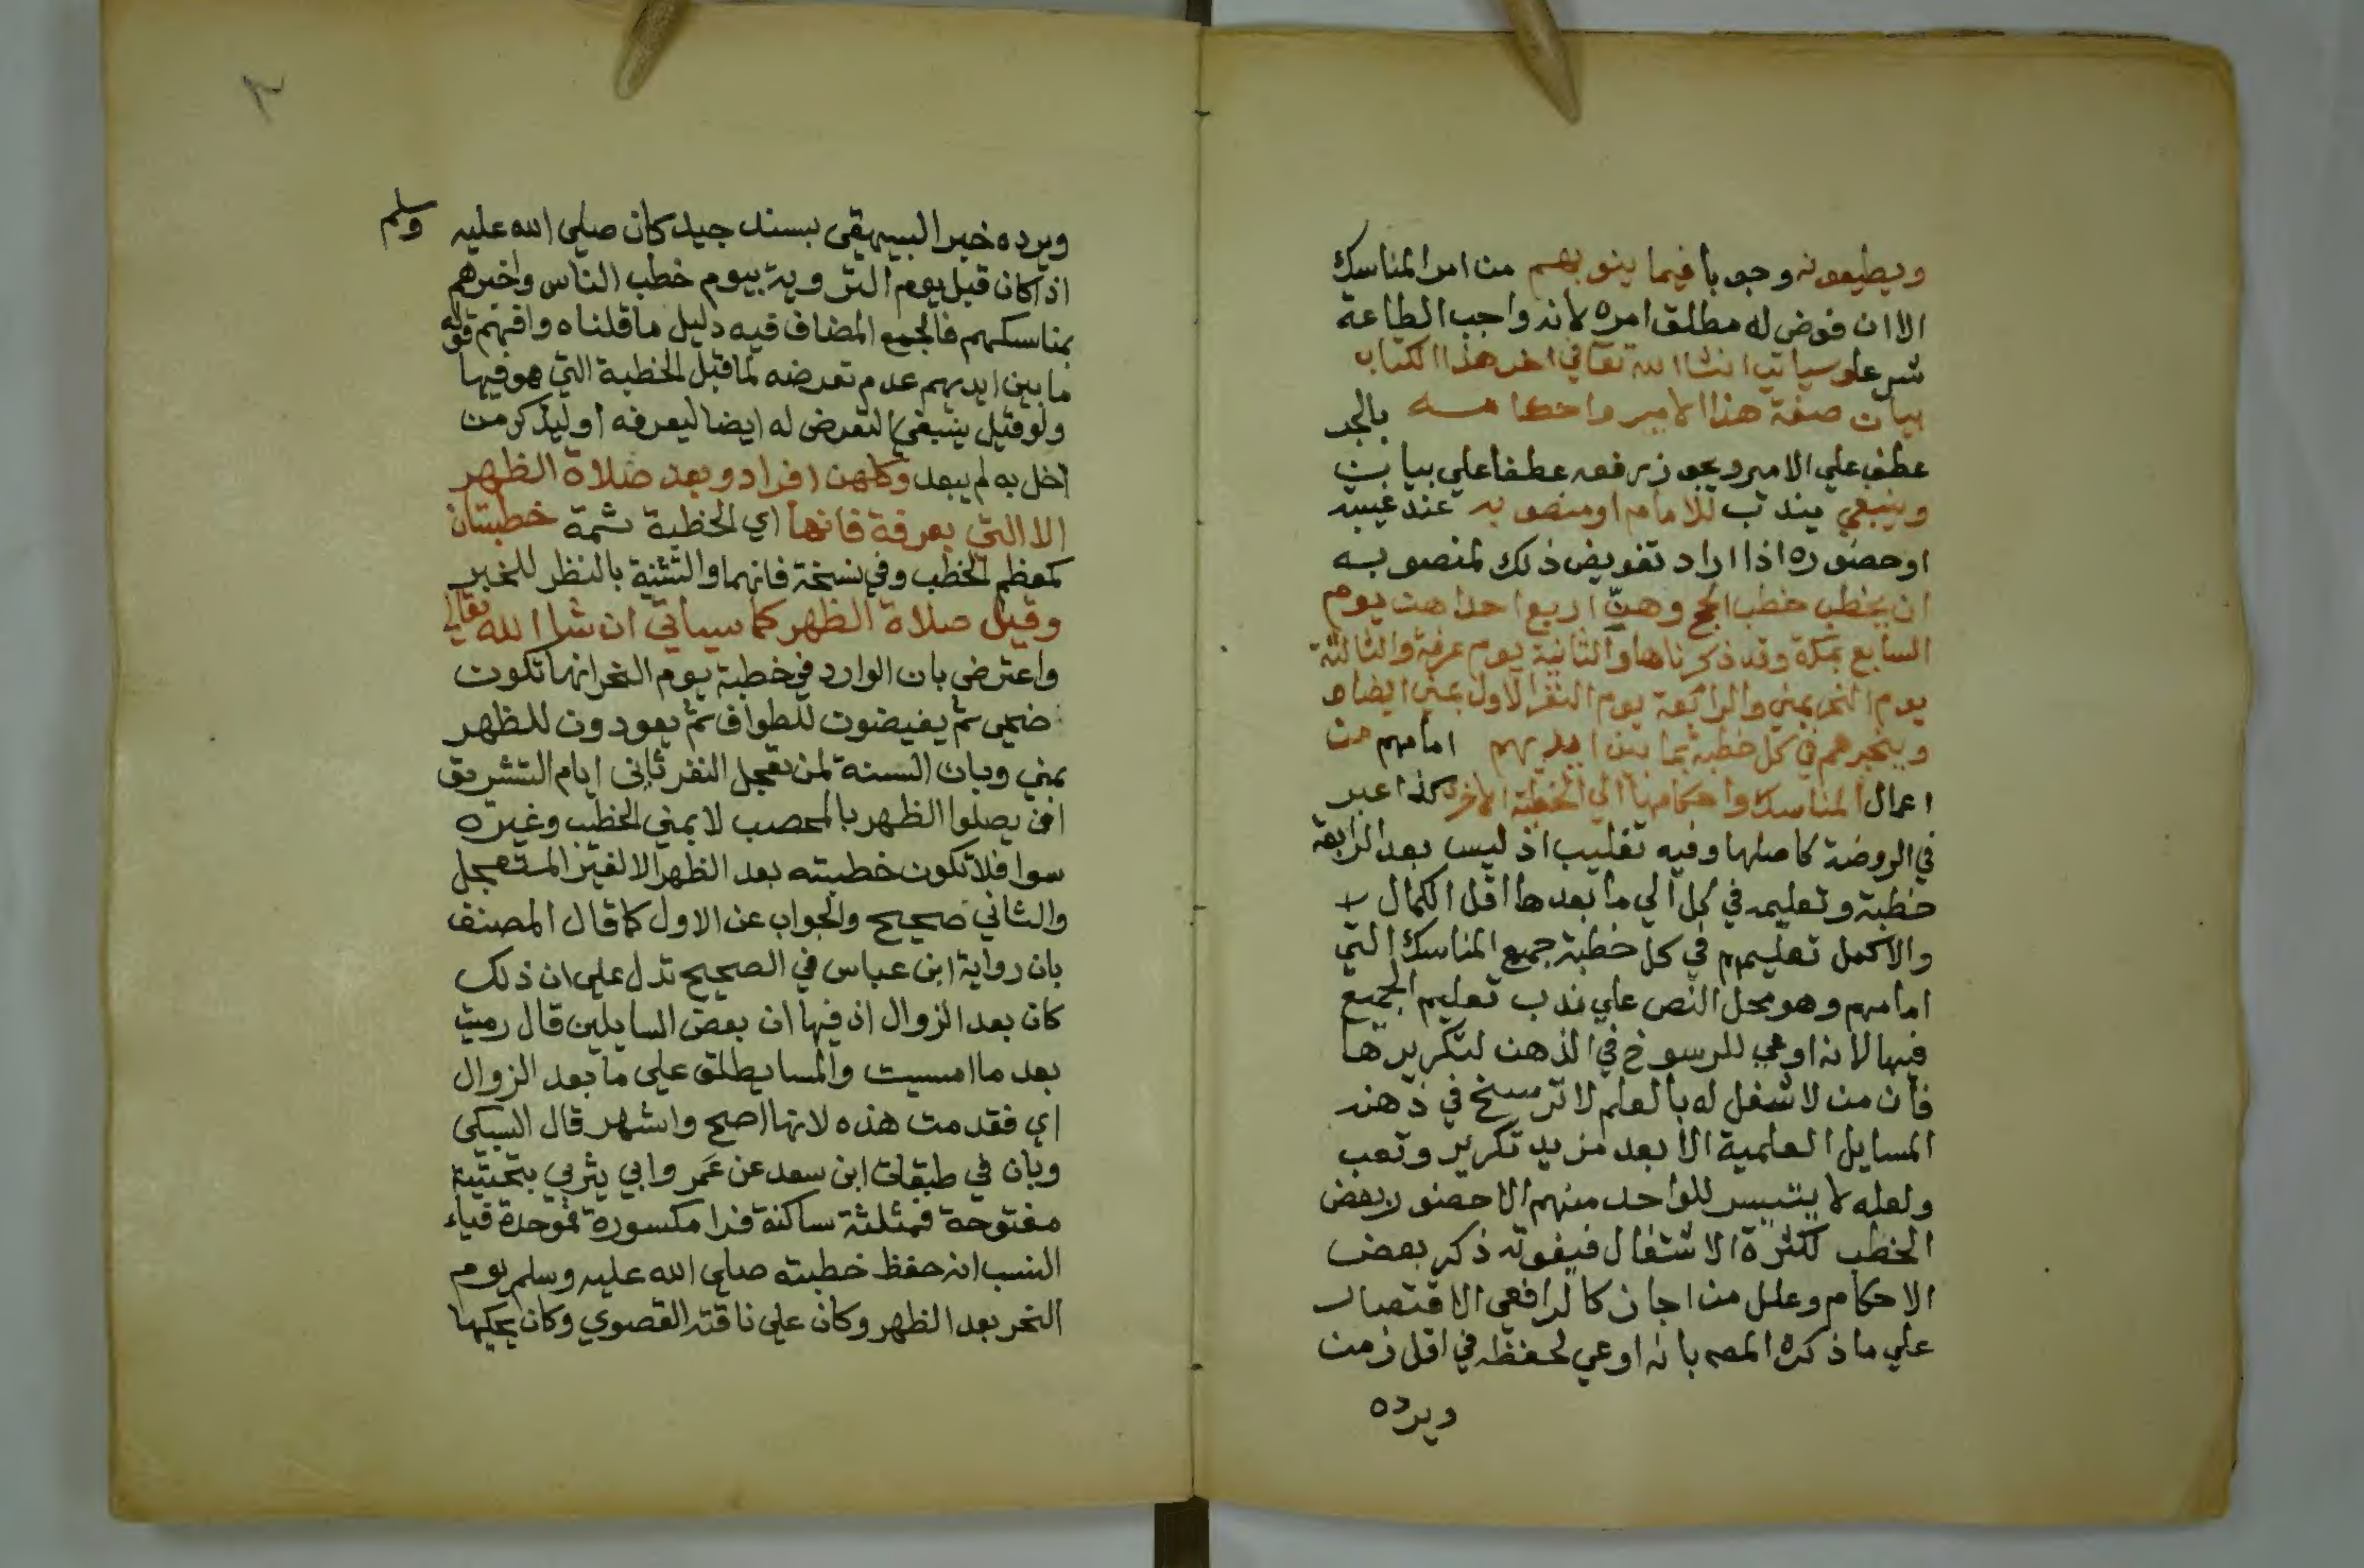 ويطيعونه وجوبا فيما ينوبهم من امر المناسك
الا ان فوض له مطلق امره لانه واجب الطاعة
شرعا وسياتي انشا الله تعالى في اخر هذا الكتاب
بيان صفة هذا الامير واحكامه بالجر
عطف علي الامير ويجوز رفعه عطفا علي بيان
وينبغي يندب للامام او منصوبه عند غيبته
او حضوره اذا اراد تفويض ذلك لمنصوبه
ان يخطب خطب الحج وهنّ اربع احداهن يوم
السابع بمكة وقد ذكرناها والثانية يوم عرفة والثالثة
يوم النحر بمني والرابعة يوم النفر الاول بمني ايضا
ويخبرهم في كل خطبة بما بين ايديهم امامهم من
اعمال المناسك واحكامها الي الخطبة الاخرى كذا عبر
في الروضة كاصلها وفيه تغليب اذ ليس بعد الرابعة
خطبة وتعليمه في كل الي ما بعدها اقل الكمال
والاكمل تعليمهم في كل خطبة جميع المناسك التي
امامهم وهو محل النص علي ندب تعليم الجميع
فيها لانه اوعي للرسوخ في الذهن لتكريرها
فان من لا شغل له بالعلم لا ترسخ في ذهنه
المسايل العلمية الا بعد مزيد تكرير وتعب
ولعله لا يتيسر للواحد منهم الا حضور بعض
الخطب لكثرة الاشتغال فيفوته ذكر بعض
الاحكام وعلل من اجاز كالرافعي الاقتصار
علي ما ذكره المصه بانه اوعي لحفظه في اقل زمن
ويرده
٢
ويرده خبر البيهقي بسند جيد كان صلي الله عليه وسلم
اذا كان قبل يوم التروية بيوم خطب الناس واخبرهم
بمناسكهم فالجمع المضاف فيه دليل ما قلناه وافهم قوله
ما بين ايديهم عدم تعرضه لما قبل الخطبة التي هو فيها
ولو قيل ينبغي التعرض له ايضا ليعرفه او ليذكر من
اخل به لم يبعد وكلهن افراد وبعد صلاة الظهر
الا التي بعرفة فانها اي الخطبة ثمة خطبتان
كمعظم الخطب وفي نسخة فانهما والتثنية بالنظر للخبر
وقبل صلاة الظهر كما سياتي ان شا الله تعالي
واعترض بان الوارد في خطبة يوم النحر انها تكون
ضحي ثم يفيضون للطواف ثم يعودون للظهر
بمني وبان السنة لمن تعجل النفر ثاني ايام التشريق
ان يصلوا الظهر بالمحصب لا بمني الخطب وغيره
سوا فلا تكون خطبته بعد الظهر الا لغير المتعجل
والثاني صحيح والجواب عن الاول كما قال المصنف
بان رواية ابن عباس في الصحيح تدل علي ان ذلك
كان بعد الزوال اذ فيها ان بعض السايلين قال رميت
بعد ما امسيت والمسا يطلق علي ما بعد الزوال
اي فقدمت هذه لانها اصح واشهر قال السبكي
وبان في طبقات ابن سعد عن عمرو ابي يثربي بتحتية
مفتوحة فمثلثة ساكنة فرا مكسورة فموحدة فياء
النسب انه حفظ خطبته صلي الله عليه وسلم يوم
النحر بعد الظهر وكان علي ناقته القصوي وكان يحكيها